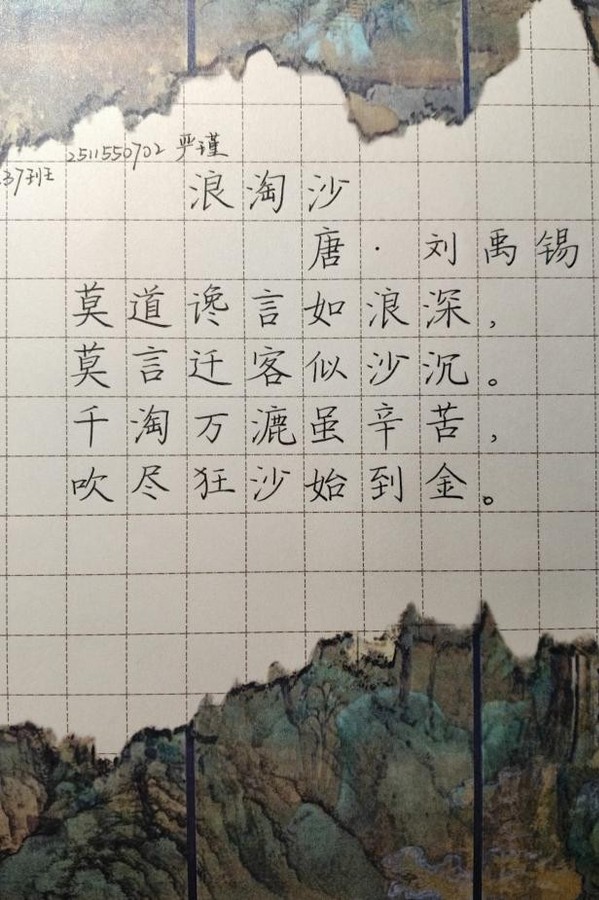 2511550702 严瑾
37班
浪淘沙
唐·刘禹锡
莫道谗言如浪深，
莫言迁客似沙沉。
千淘万漉虽辛苦，
吹尽狂沙始到金。